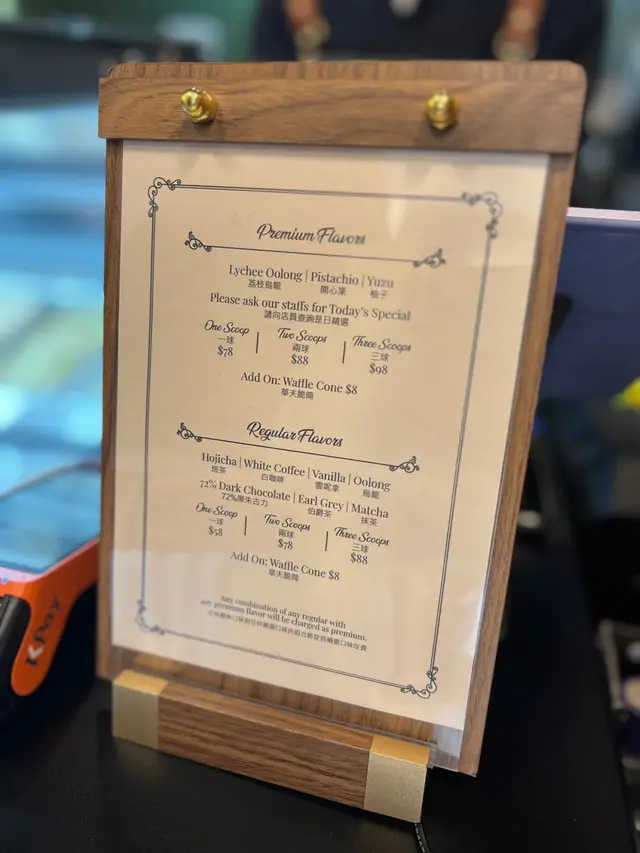 Premium Flavors
Lychee Oolong | Pistachio | Yuzu
荔枝烏龍 開心果 柚子
Please ask our staffs for Today's Special
請向店員查詢是日精選
One Scoop Two Scoops Three Scoops
一球 兩球 三球
$78 $88 $98
Add On: Waffle Cone $8
華夫脆筒
Regular Flavors
Hojicha | White Coffee | Vanilla | Oolong
焙茶 白咖啡 雲呢拿 烏龍
72% Dark Chocolate | Earl Grey | Matcha
72%黑朱古力 伯爵茶 抹茶
One Scoop Two Scoops Three Scoops
一球 兩球 三球
$58 $78 $88
Add On: Waffle Cone $8
華夫脆筒
Any combination of any regular with
any premium flavor will be charged as premium.
KPay